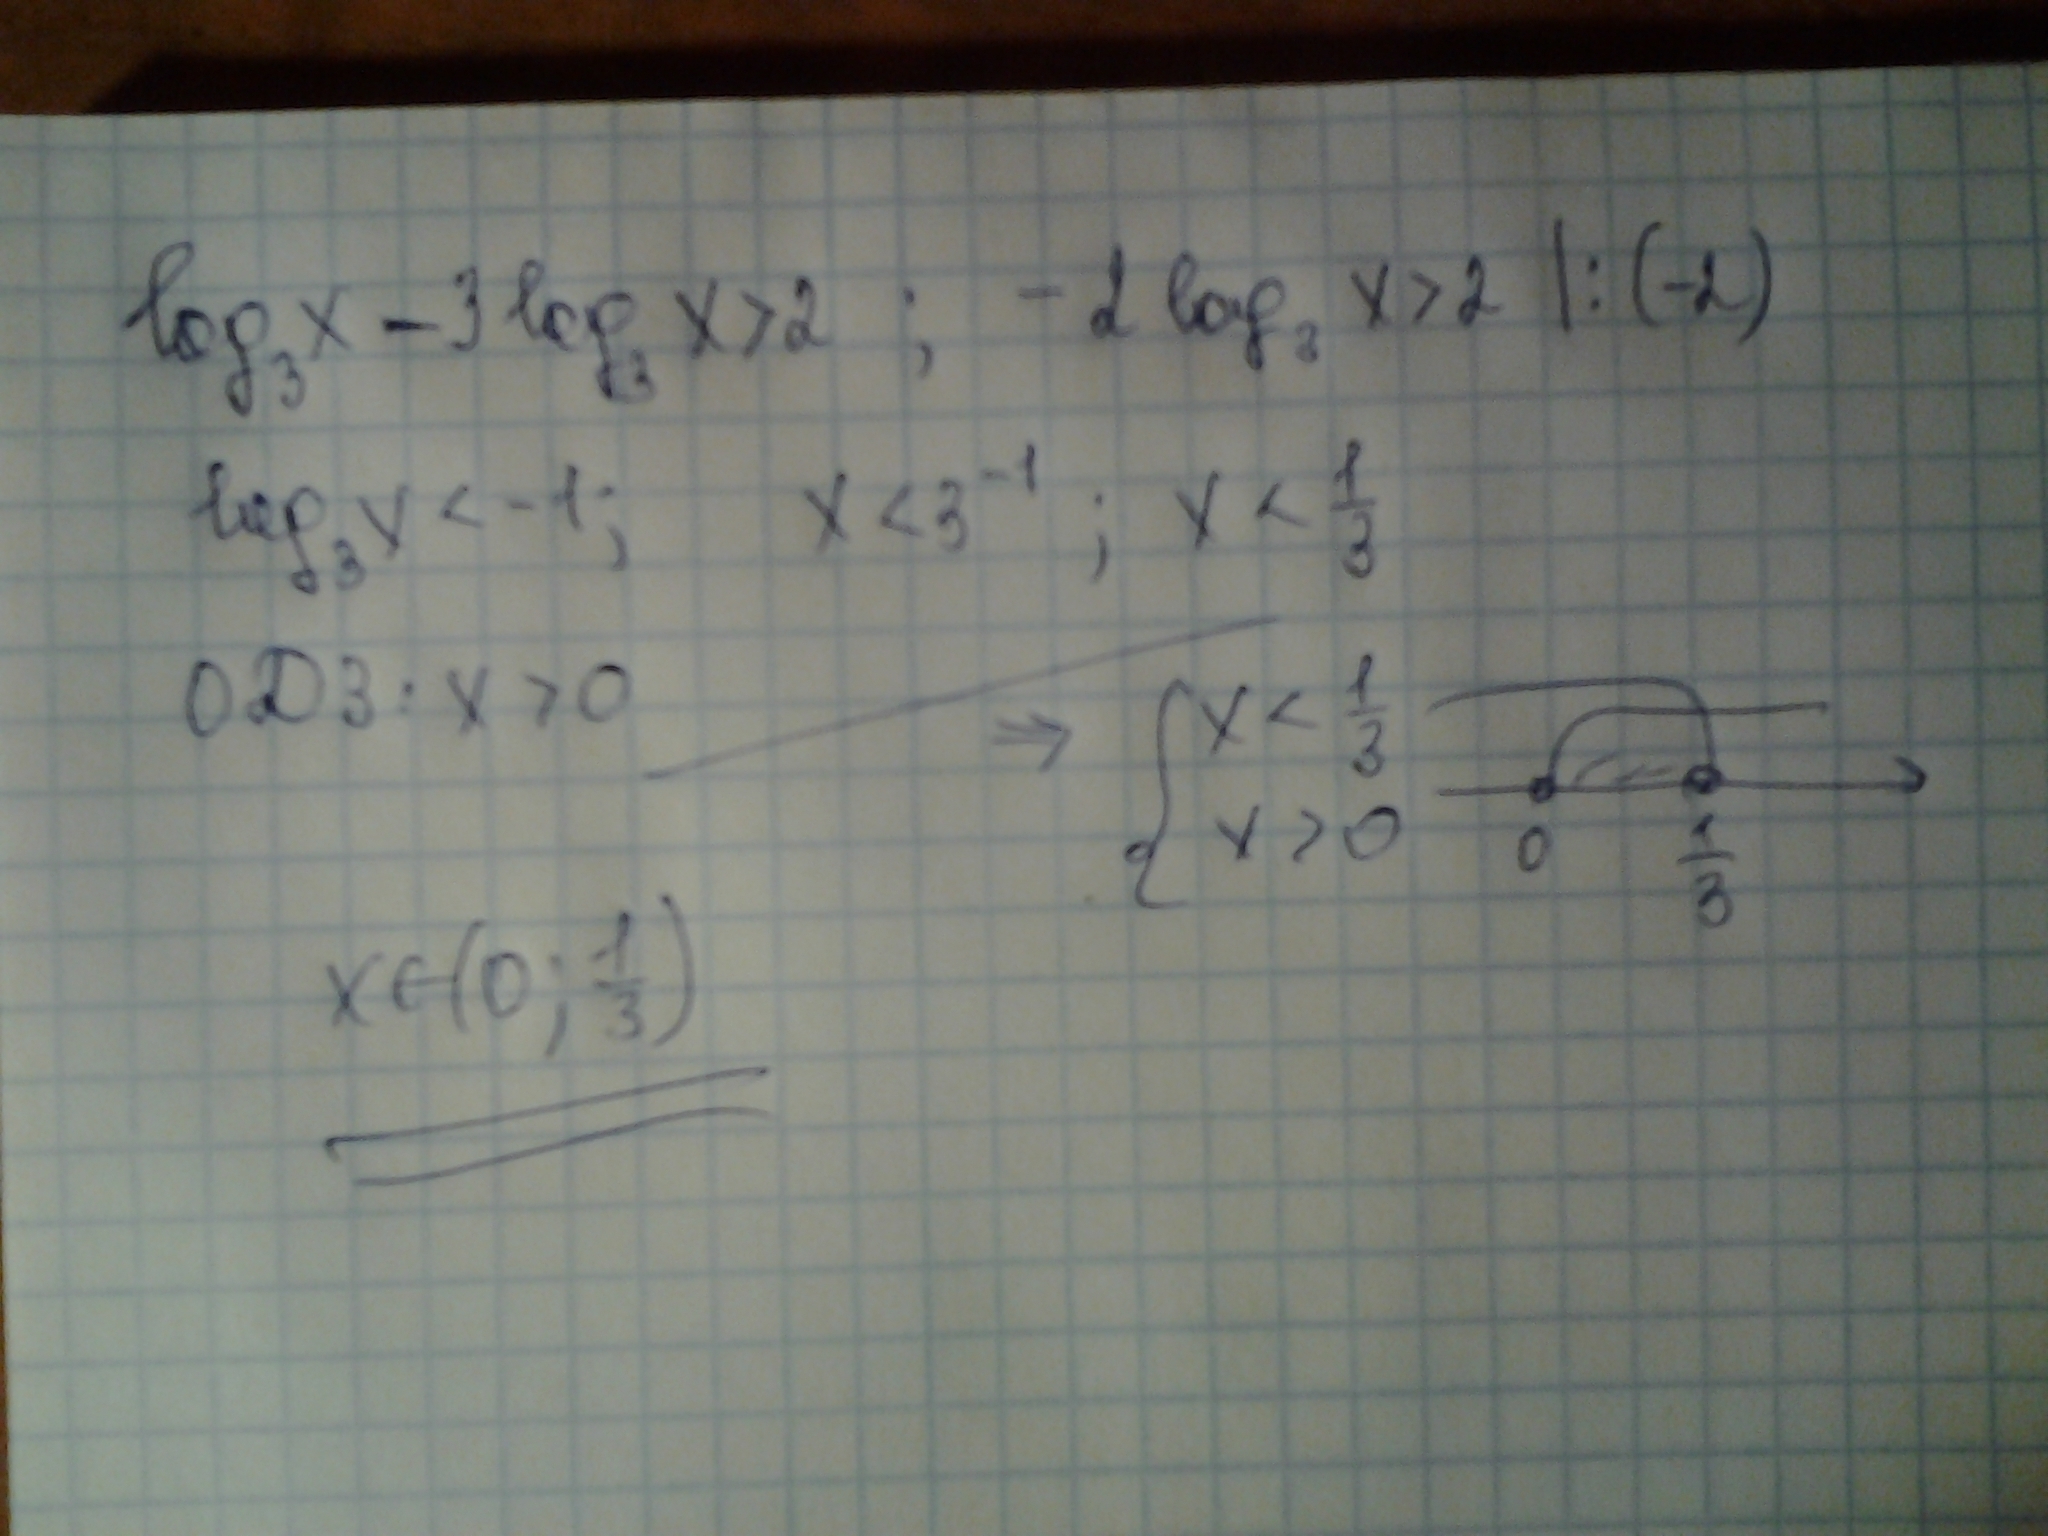 log₃x - 3log₃x>2 ; -2log₃x>2 |:(-2)
log₃x < -1; x < 3⁻¹ ; x < 1/3
ОДЗ: x > 0
⇒ { x < 1/3
x > 0
0 1/3
x∈(0; 1/3)